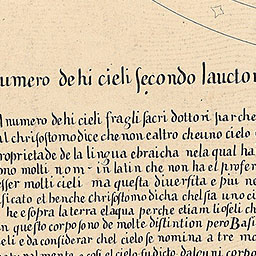 numero dehi cieli secondo lauctor
l numero dehi cieli fragli sacri dottori par che
al chrisostomo dice che non e altro che uno cielo
roprietade de la lingua ebraicha nela qual ha
ono molti nom- in latin che non ha el profer
esser molti cieli ma questa diversita e piu ne
sicato et benche chrisostomo dicha che sia uno ci
he e sopra la terra e laqua perche etiam li oseli ch
n questo corpo sono de molte distintion pero Basi
eli e da considerar chel cielo se nomina a tre mo